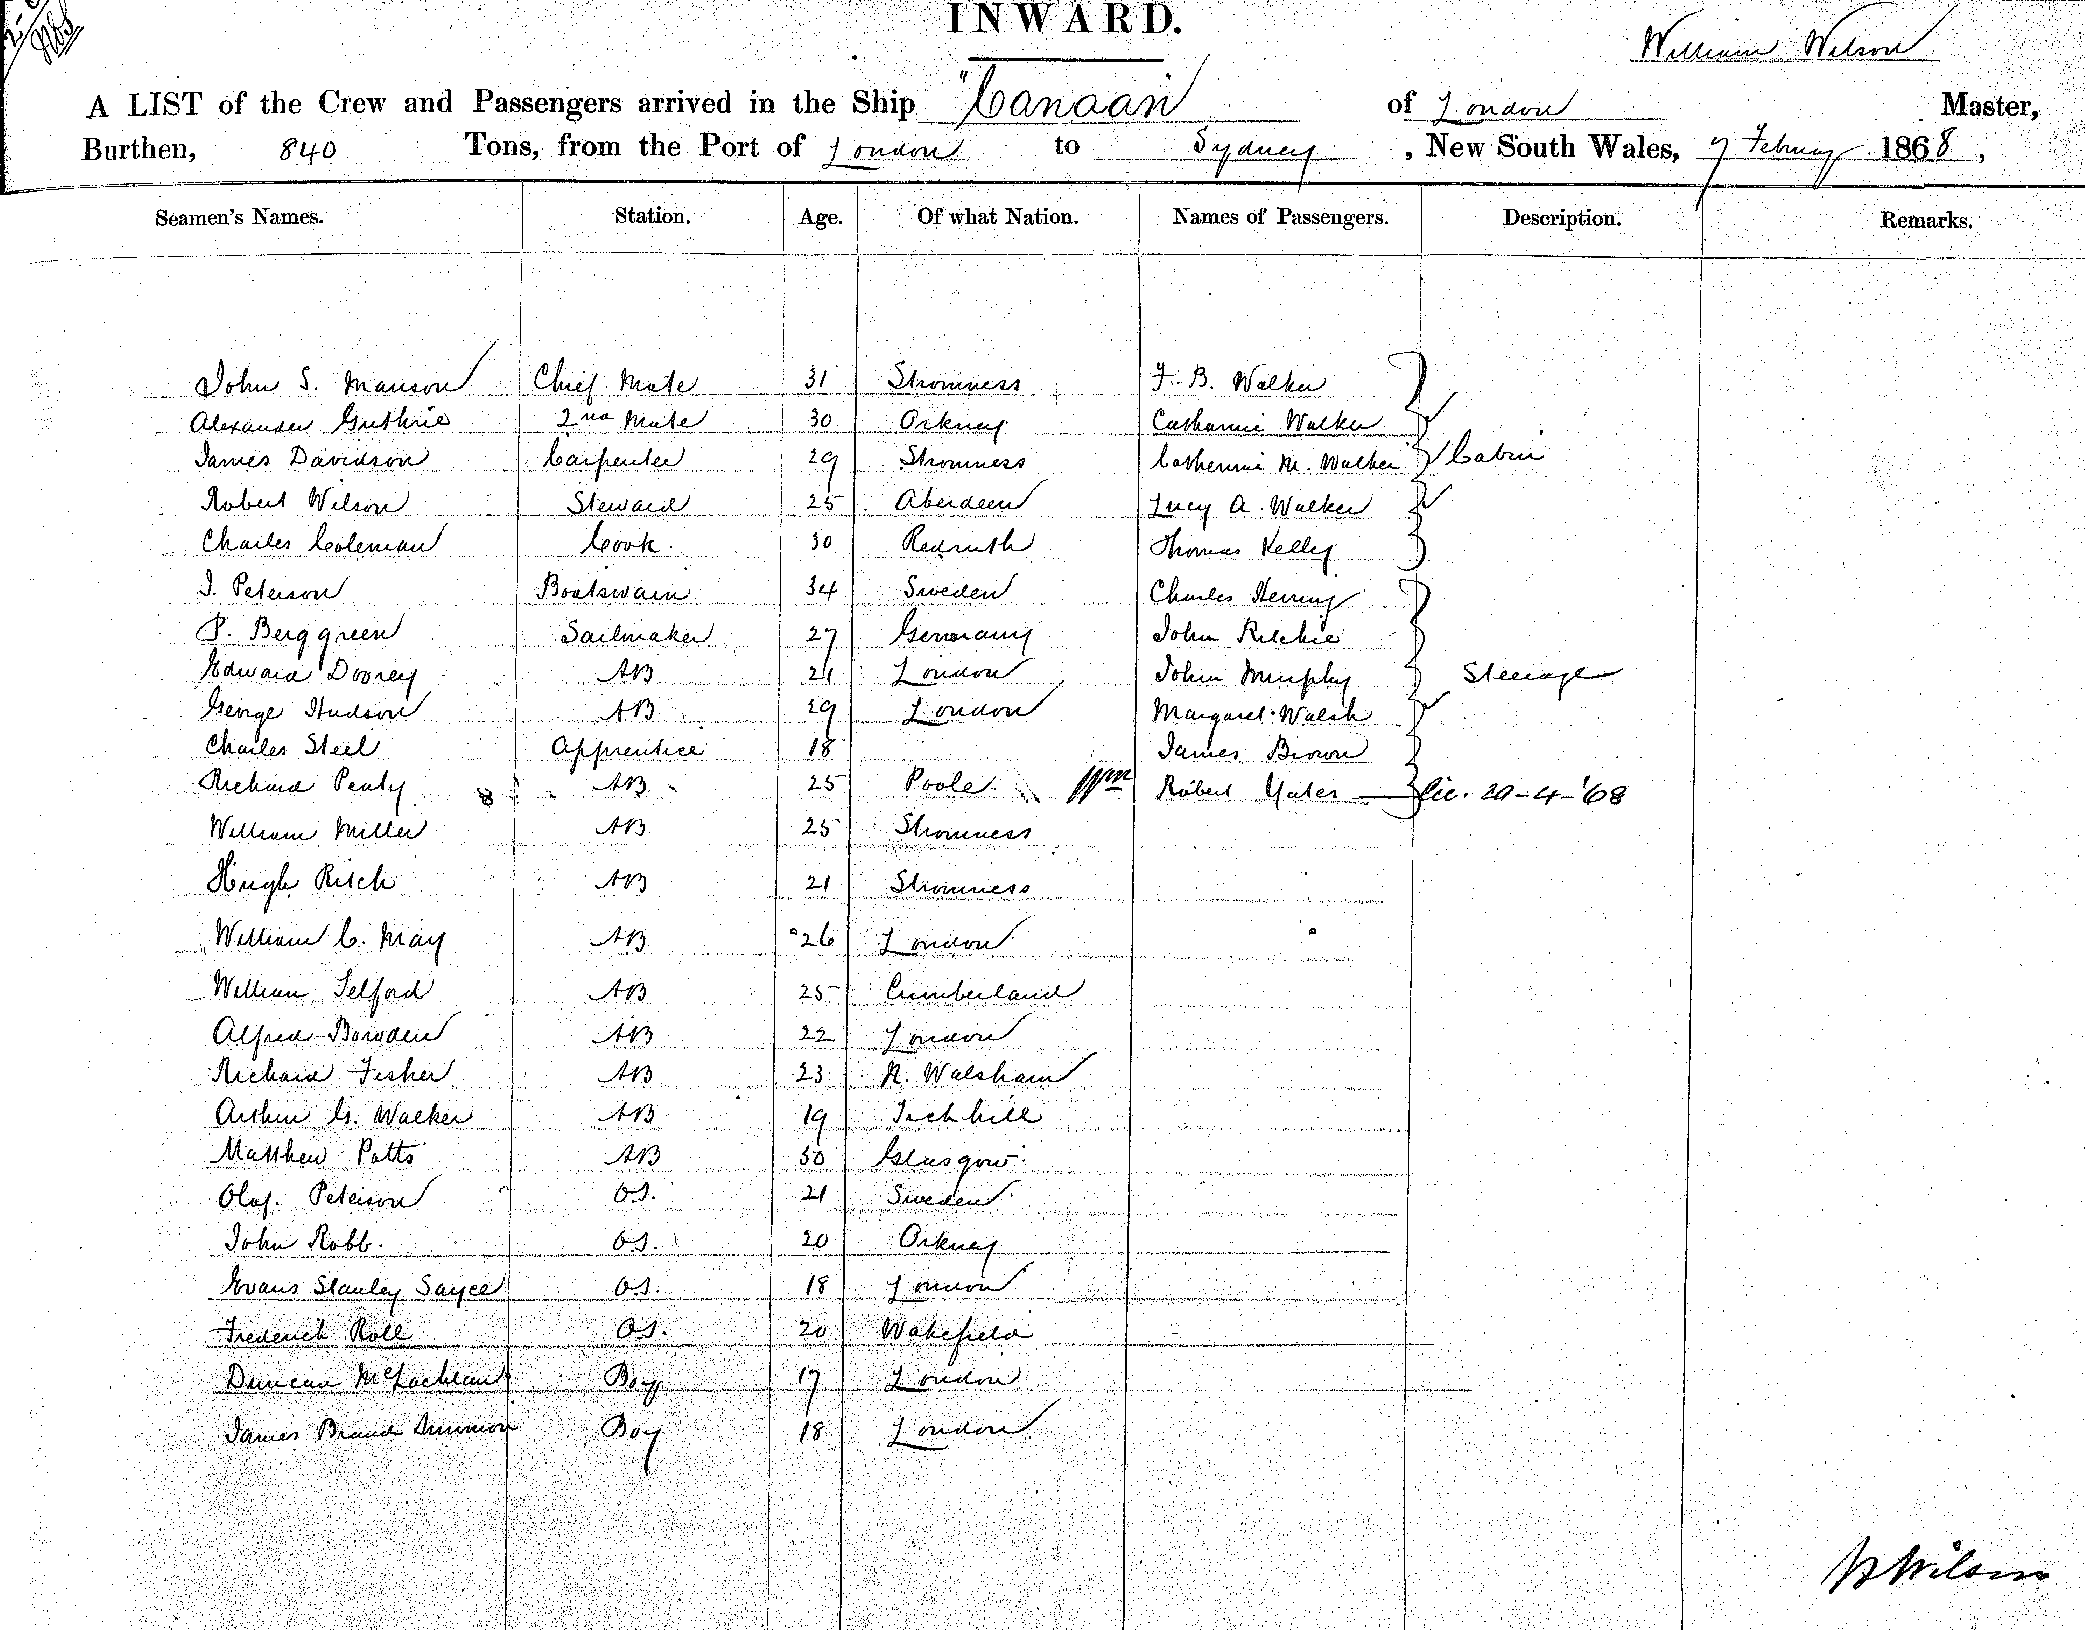 INWARD.
William Wilson
A LIST of the Crew and Passengers arrived in the Ship "Canaan" of London Master,
Burthen, 840 Tons, from the Port of London to Sydney, New South Wales, 7 February 1868,
Seamen's Names. Station. Age. Of what Nation. Names of Passengers. Description. Remarks.
John S. Manson Chief Mate 31 Stromness F. B. Walker
Alexander Guthrie 2nd Mate 30 Orkney Catharine Walker
James Davidson Carpenter 29 Stromness Catherine M. Walker Cabin
Robert Wilson Steward 25 Aberdeen Lucy A. Walker
Charles Coleman Cook. 30 Redruth Thomas Kelly
J. Peterson Boatswain 34 Sweden Charles Herring
P. Berggreen Sailmaker 27 Germany John Ritchie
Edward Doorey AB 21 London John Murphy Steerage
George Hudson AB 29 London Margaret Walsh
Charles Steel Apprentice 18 James Brown
Richard Penty AB 25 Poole Robert Yates 20-4-'68
William Miller AB 25 Stromness
Hugh Ritch AB 21 Stromness
William C. May AB 26 London
William Telford AB 25 Cumberland
Alfred Bowden AB 22 London
Richard Fisher AB 23 N. Walsham
Arthur G. Walker AB 19
Matthew Potts AB 30 Glasgow
Olaf Peterson OS. 21 Sweden
John Robb. OS. 20 Orkney
Evans Stanley Sayce OS. 18 London
Frederick Roll OS. 20 Wakefield
Duncan McLachlan Boy 17 London
James Brand Boy 18 London
W Wilson